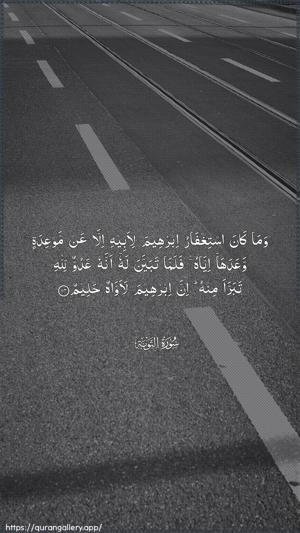 وَمَا كَانَ اسْتِغْفَارُ اِبْرٰهِيْمَ لِاَبِيْهِ اِلَّا عَنْ مَّوْعِدَةٍ
وَّعَدَهَاۤ اِيَّاهُ ۚ فَلَمَّا تَبَيَّنَ لَهٗۤ اَنَّهٗ عَدُوٌّ لِّلّٰهِ
تَبَرَّاَ مِنْهُ ؕ اِنَّ اِبْرٰهِيْمَ لَاَوَّاهٌ حَلِيْمٌ
سُورَةُ التَّوْبَة
https://qurangallery.app/